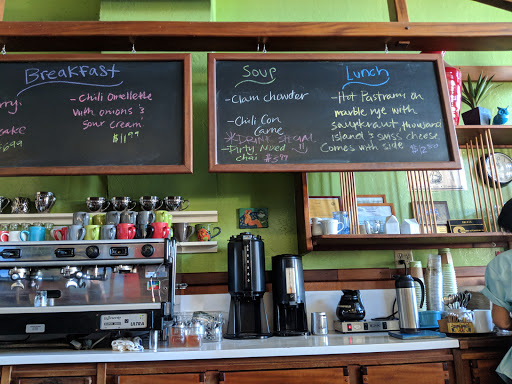 Breakfast
rry.
- Chili Omellette
with onions &
sour cream
$11.99
Soup
- Clam chowder
- Chili Con
Carne
* DRINK SPECIAL
- Dirty Mixed
chai $5.99
Lunch
- Hot Pastrami on
marble rye with
saurkraut, thousand
island & swiss cheese
Comes with side